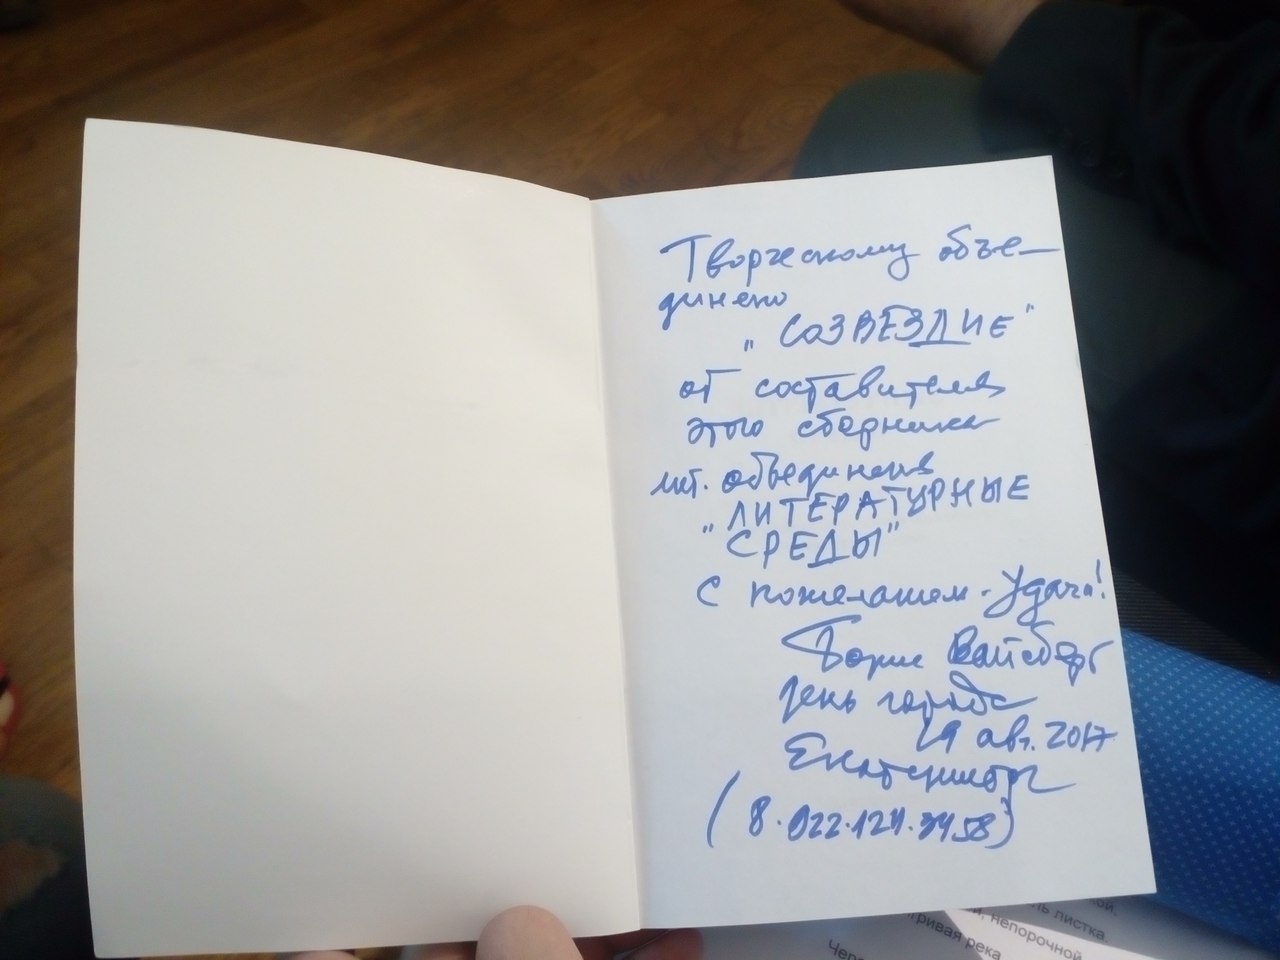 Творческому объе-
динению
"СОЗВЕЗДИЕ"
от составителя
этого сборника
лит. объединения
"ЛИТЕРАТУРНЫЕ
СРЕДЫ"
с пожеланием - Удачи!
Борис Вайсберг
день города
19 авг. 2017
Екатеринбург
ль листка.
, непорочной
гривая река